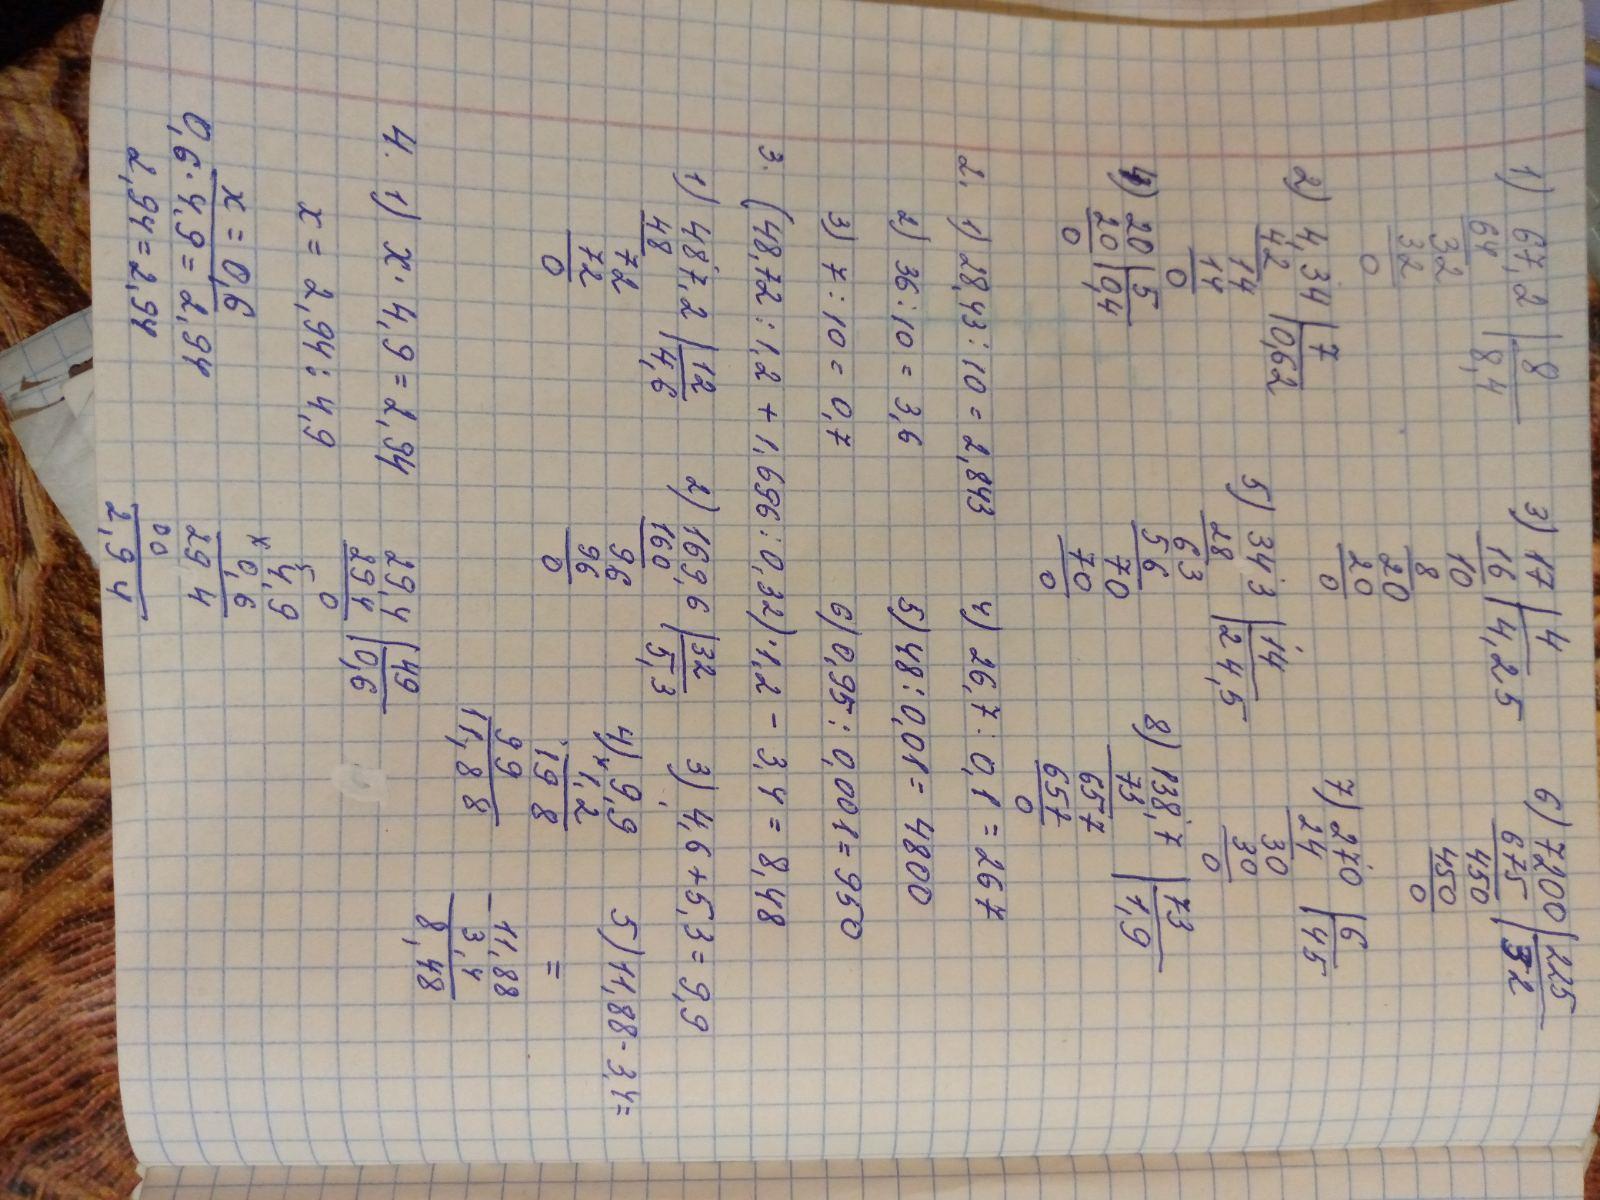 1) 67,2 | 8
64 8,4
32
32
0
3) 17 | 4
16 4,25
10
8
20
20
0
6) 7200 | 225
675 32
450
450
0
2) 4,34 | 7
42 0,62
14
14
0
5) 343 | 14
28 24,5
63
56
70
70
0
7) 270 | 6
24 45
30
30
0
4) 20 | 5
20 0,4
0
8) 138,7 | 73
73 1,9
657
657
0
2. 1) 28,43 : 10 = 2,843
4) 26,7 : 0,1 = 267
2) 36 : 10 = 3,6
5) 48 : 0,01 = 4800
3) 7 : 10 = 0,7
6) 0,95 : 0,001 = 950
3. (48,72 : 1,2 + 1,696 : 0,32) · 1,2 - 3,4 = 8,48
1) 487,2 | 12
48 4,6
72
72
0
2) 169,6 | 32
160 5,3
96
96
0
3) 4,6 + 5,3 = 9,9
4) 9,9
× 1,2
198
99
11,88
5) 11,88 - 3,4 =
=
- 11,88
3,4
8,48
4. 1) x · 4,9 = 2,94
x = 2,94 : 4,9
x = 0,6
0,6 · 4,9 = 2,94
2,94 = 2,94
29,4 | 49
294 0,6
0
4,9
× 0,6
294
00
2,94